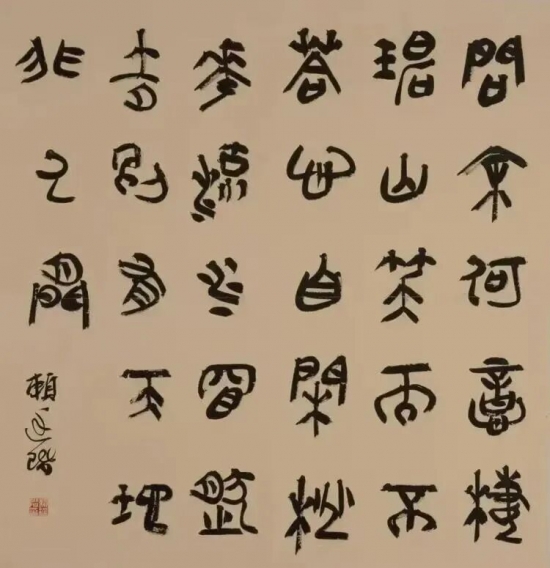 問余何意棲
碧山笑而不
荅心自閑桃
華流水窅然
去別有天地
非人間
賴廷階